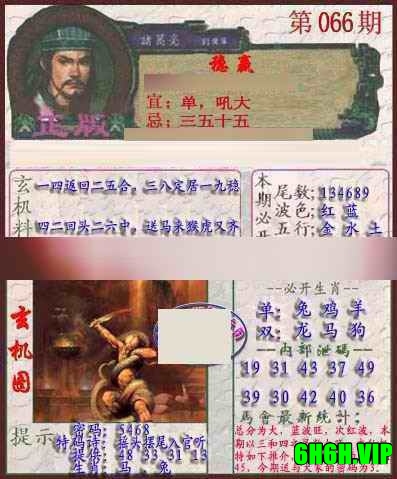 第066期
諸葛亮
稳赢
宜:单,吼大
忌:三五十五
正版
玄机料
一四返回二五合,三八定居一九稔
四二回头二六中,送马来猴虎又齐
本期必开
尾数:134689
波色:红 蓝
五行:金 水 土
--必开生肖--
单:兔 鸡 羊
双:龙 马 狗
--内部泄码--
19 31 43 37 49
13 25 44 32 20
39 30 42 40 36
馬會最新統計:
总分为大,蓝波旺,次红波,本
期以三和四
特如下推介
45,今期送与大家的密码为3.
玄机图
提示
密码:5468
特码诗:接头摆尾入官听
提供:48 33 31 13
生肖:马、兔
6HGH.VIP